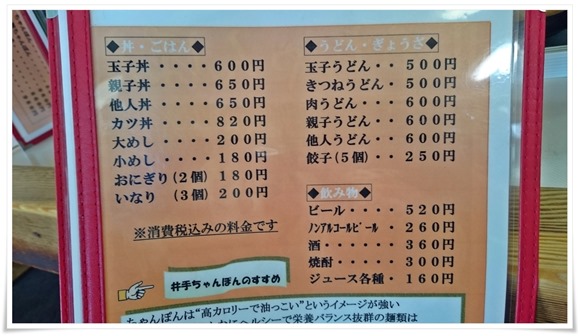 ◆丼・ごはん◆
玉子丼・・・・600円
親子丼・・・・650円
他人丼・・・・650円
カツ丼・・・・820円
大めし・・・・200円
小めし・・・・180円
おにぎり(2個)180円
いなり (3個)200円
※消費税込みの料金です
井手ちゃんぽんのすすめ
ちゃんぽんは“高カロリーで油っこい”というイメージが強い
ヘルシーで栄養バランス抜群の麺類は
◆うどん・ぎょうざ◆
玉子うどん・・500円
きつねうどん・500円
肉うどん・・・600円
親子うどん・・600円
他人うどん・・600円
餃子(5個)・・250円
◆飲み物◆
ビール・・・・520円
ノンアルコールビール・260円
酒・・・・・・360円
焼酎・・・・・300円
ジュース各種・160円